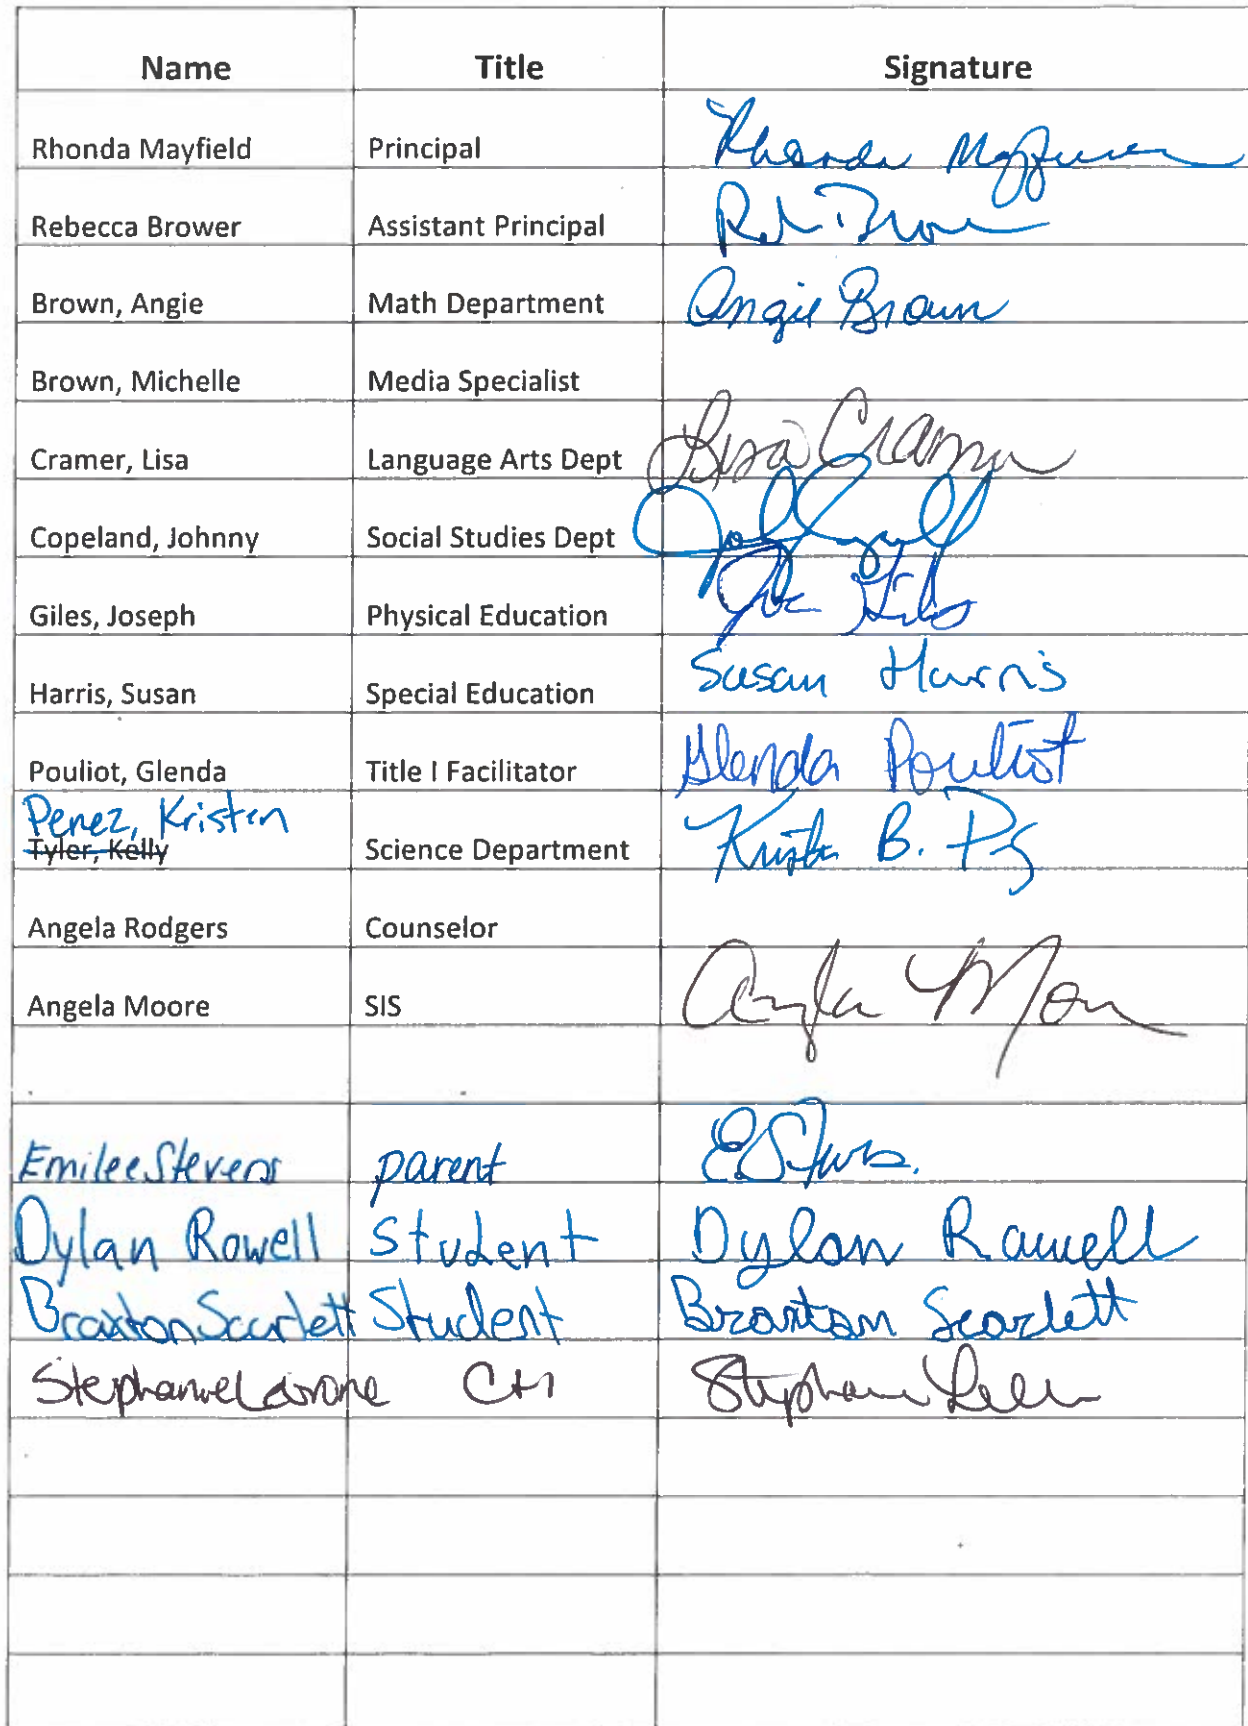 Name Title Signature
Rhonda Mayfield Principal Rhonda
Rebecca Brower Assistant Principal
Brown, Angie Math Department Angie Brown
Brown, Michelle Media Specialist
Cramer, Lisa Language Arts Dept Lisa Cramer
Copeland, Johnny Social Studies Dept
Giles, Joseph Physical Education Joe Giles
Harris, Susan Special Education Susan Harris
Pouliot, Glenda Title I Facilitator Glenda Pouliot
Perez, Kristen
Tyler, Kelly Science Department Kristen B.
Angela Rodgers Counselor
Angela Moore SIS Angela Moore
Emilee Stevens parent
Dylan Rowell Student Dylan Rowell
Braxton Scarlett Student Braxton Scarlett
Stephanie Stephanie